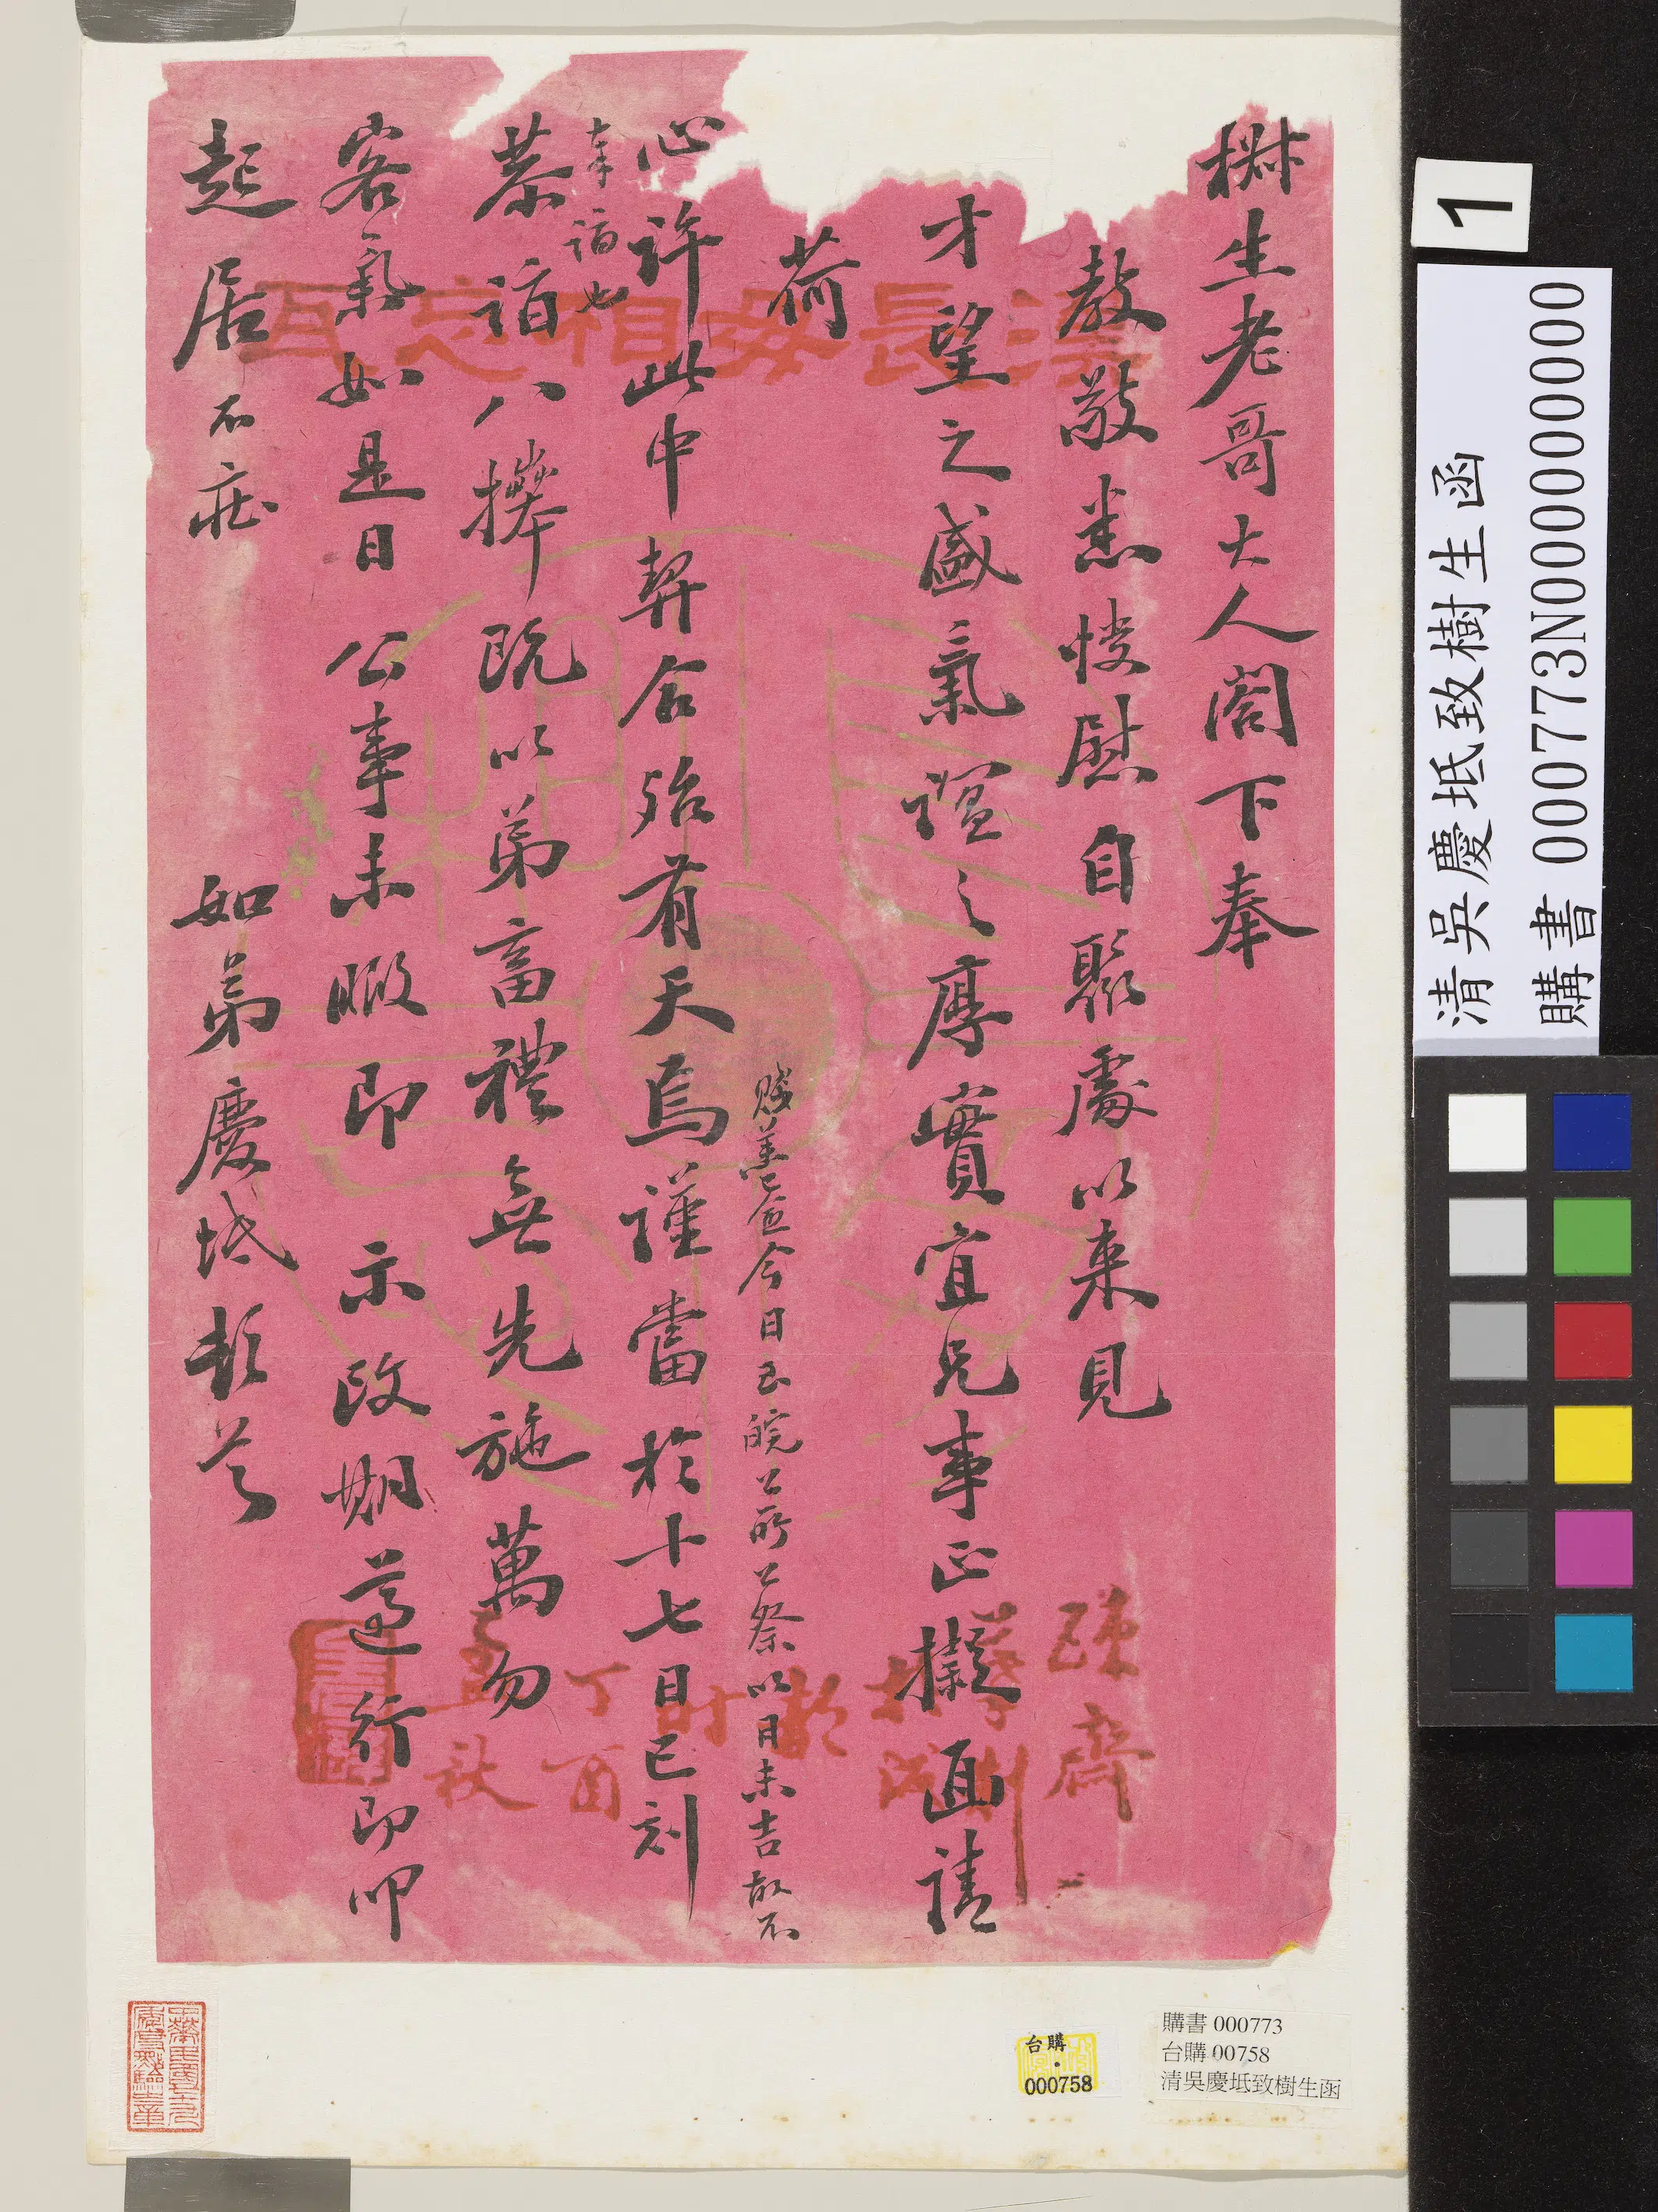 樹生老哥大人閣下奉
教敬悉快慰自聚處以來見
才望之盛氣誼之厚實宜兄事正擬面請
荷
心許此中契合殆有天焉謹當於十七日巳刻
賤恙已痊今日至皖公所公祭以日未吉故不
奉詣也
恭詣八搼既以弟畜禮無先施萬勿
客氣如是日公事未暇即示改期遵行即叩
起居不莊
如弟慶坻頓首
長毋相忘瓦
疎齋
時
丁酉
孟秋
1
清吳慶坻致樹生函
購書 000773N000000000
台購
000758
購書 000773
台購 00758
清吳慶坻致樹生函